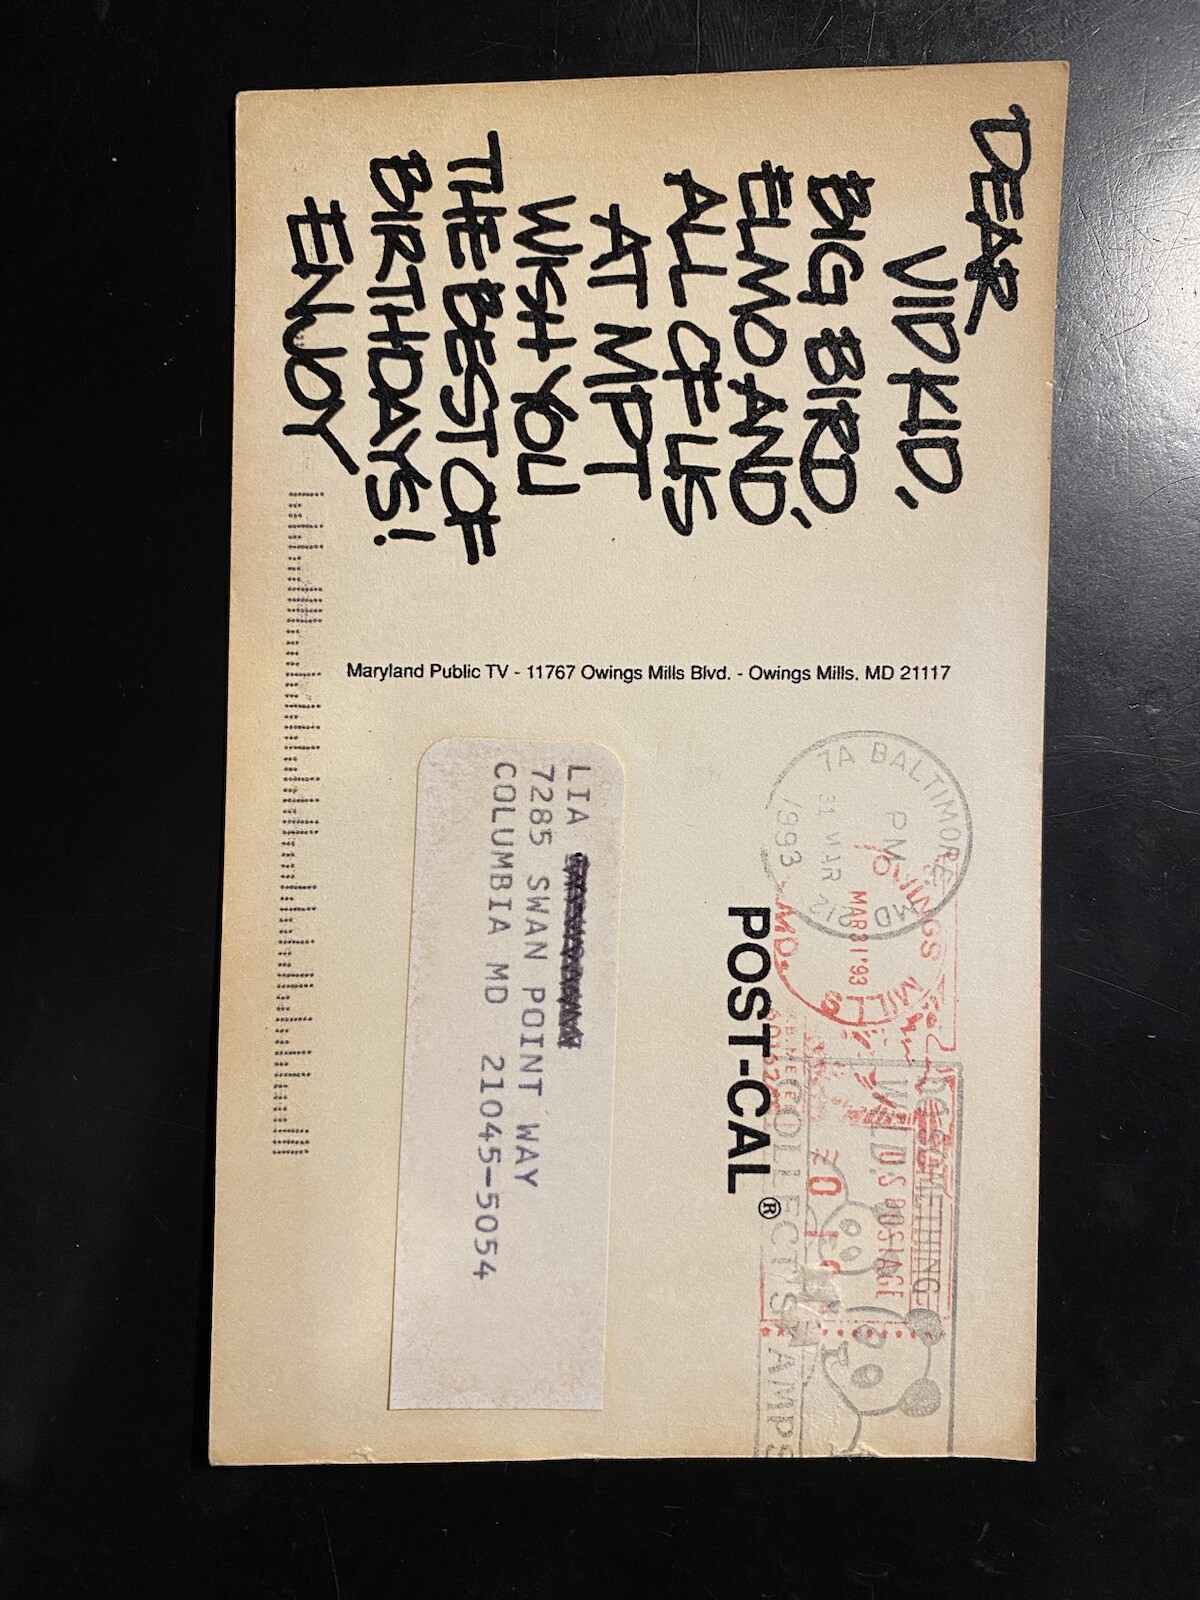 DEAR
VID KID,
BIG BIRD,
ELMO AND,
ALL OF US
AT MPT
WISH YOU
THE BEST OF
BIRTHDAYS!
ENJOY
Maryland Public TV - 11767 Owings Mills Blvd. - Owings Mills, MD 21117
BALTIMORE MD 212
PM
31 MAR
1993
OWINGS MILLS
MAR 31 '93
MD.
U.S. POSTAGE
DO SOMETHING
WILD:
COLLECT STAMPS
POST-CAL®
LIA
7285 SWAN POINT WAY
COLUMBIA MD 21045-5054